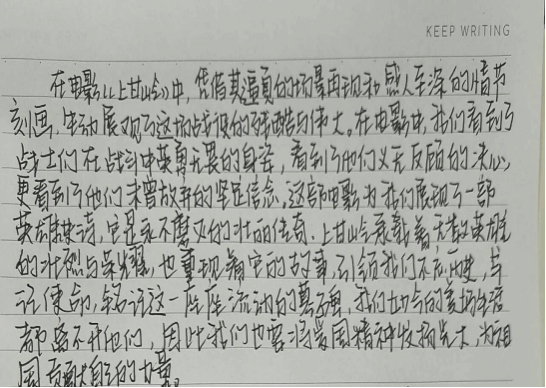 KEEP WRITING
在电影《上甘岭》中，凭借其逼真的场景再现和感人至深的情节
刻画，生动展现了这场战役的残酷与伟大。在电影中，我们看到了
战士们在战斗中英勇无畏的身姿，看到了他们义无反顾的决心，
更看到了他们未曾放弃的坚定信念。这部电影为我们展现了一部
英雄史诗，它是永不磨灭的壮丽传奇。上甘岭承载着无数英雄
的壮烈与荣耀，也重现着它的故事，引领我们不忘历史，牢
记使命，铭记这一座座流动的墓碑，我们如今的美好生活
都离不开他们，因此我们也要将爱国精神发扬光大，为祖
国贡献自己的力量。